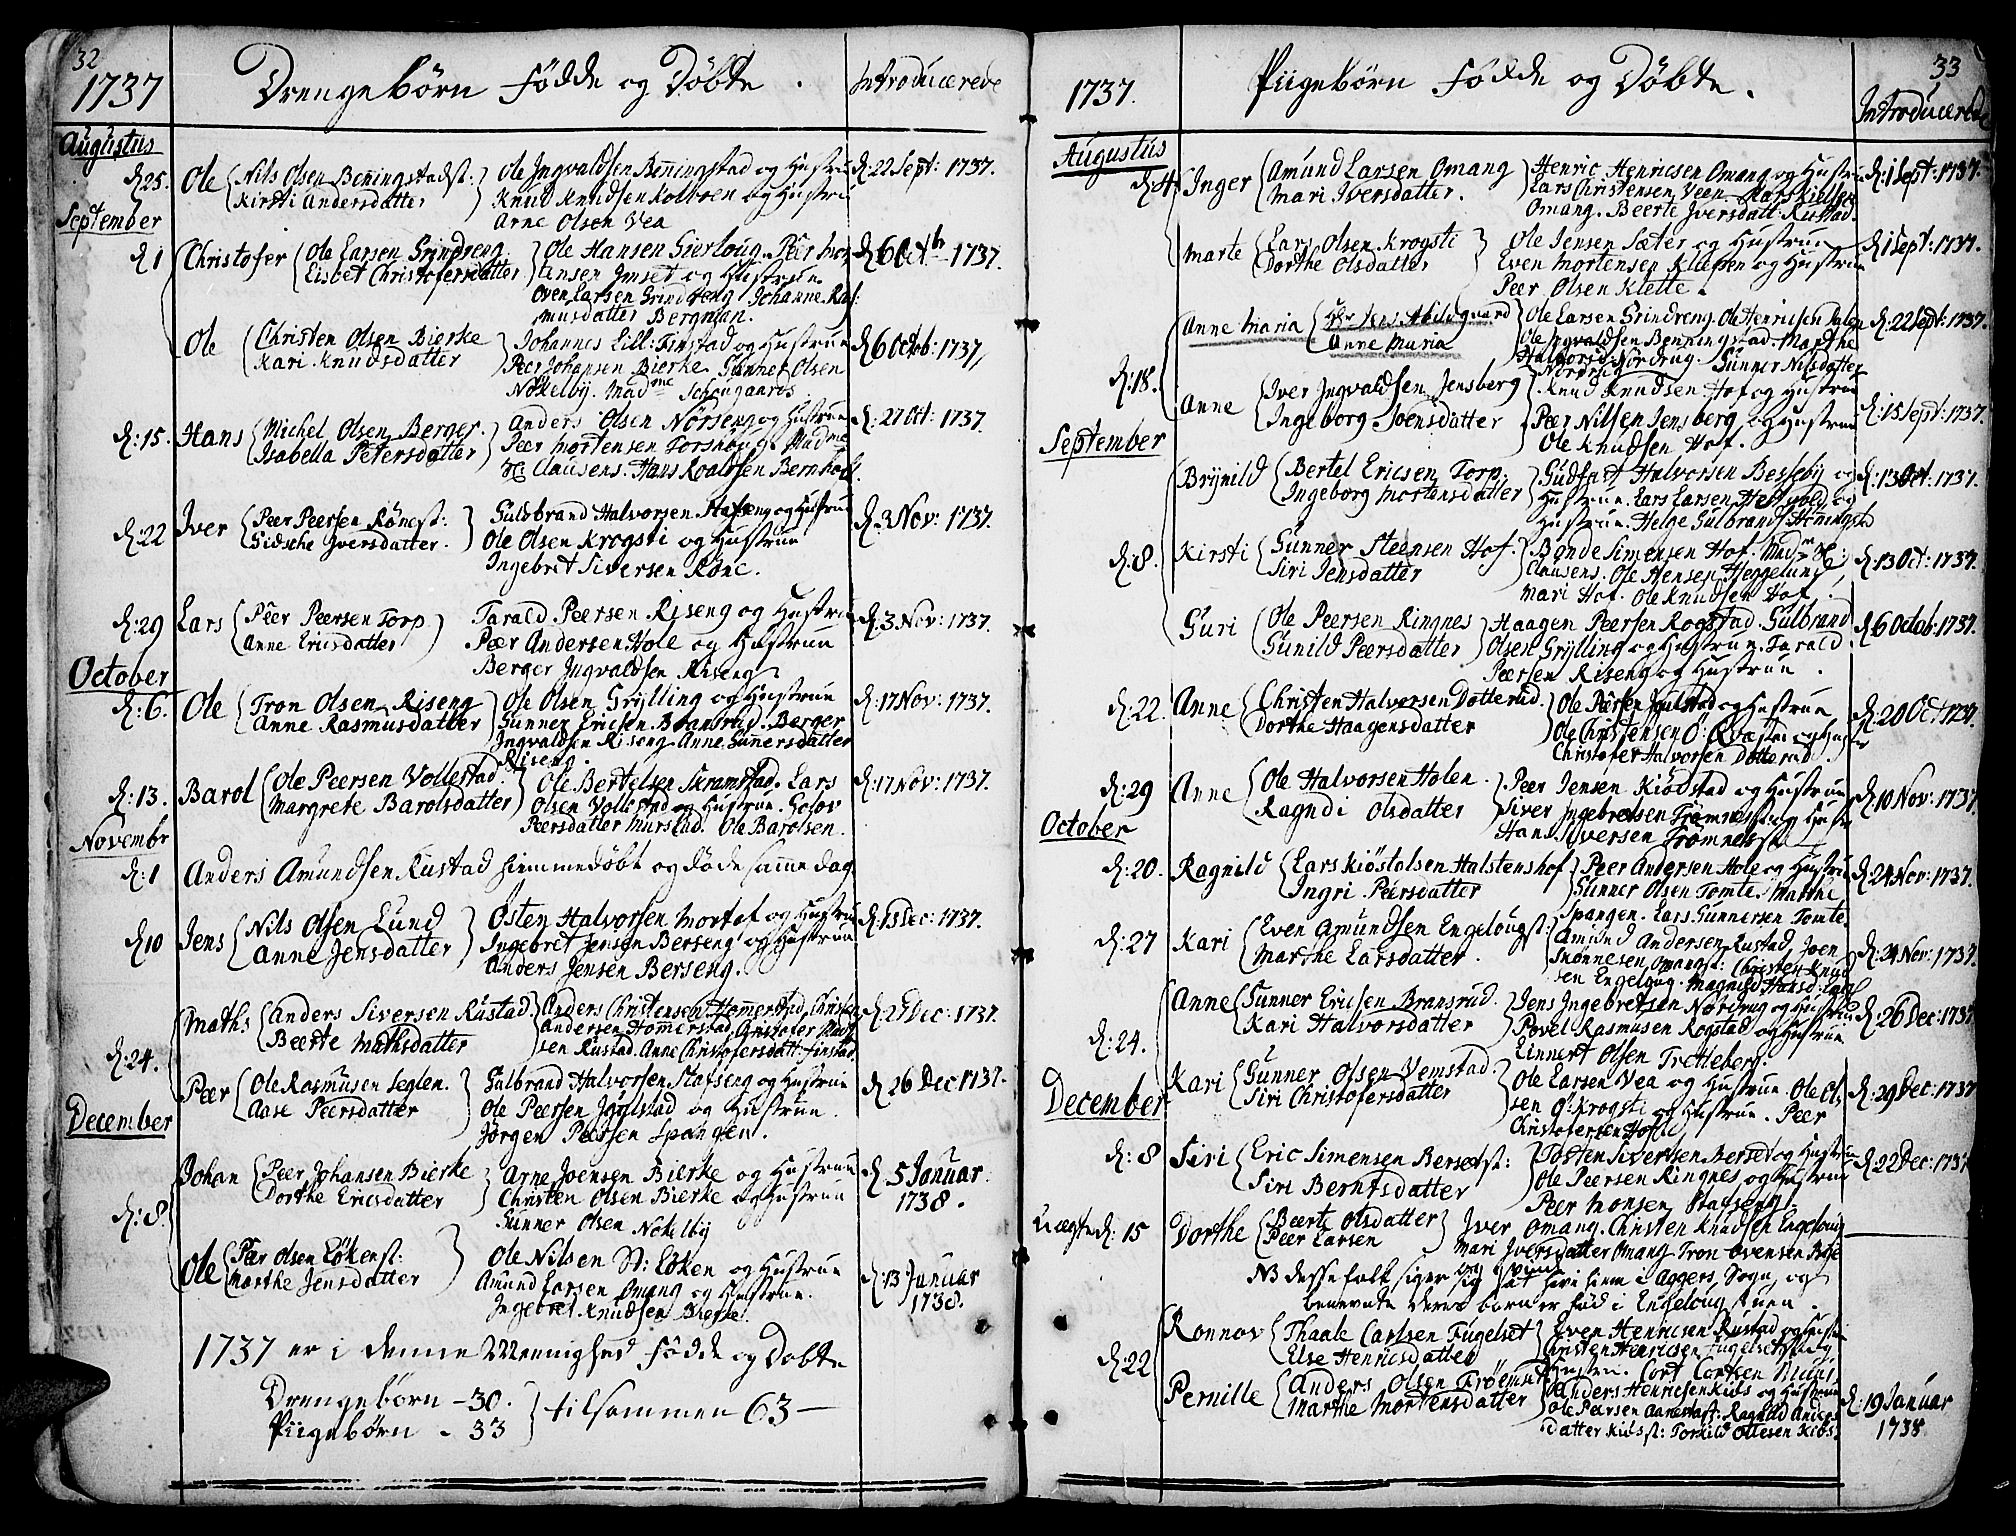 32
1737 Drengebörn Födde og Döbte. Introducerede
Augustus
d. 25. Ole Nils Olsen Benningstadst: Ole Ingvaldsen Benningstad og Hustru d. 22 Sept: 1737.
Kirsti Andersdatter Knud Knudsen Kolbren og Hustru
Arne Olsen Vea
September
d. 1 Christofer Ole Larsen Grindreng Ole Hansen Sterloug. Peer Mor d. 6 Octbr 1737.
Lisbet Christofersdatter tensen Imset og Hustrue.
Oven Larsen Grindreng Johanne Ras:
musdatter Bergman.
Ole Christen Olsen Bierke Johannes Lill: Finstad og Hustrue d. 6 Octob: 1737,
Kari Knudsdatter Peer Johansen Bierke Gunner Olsen
Nökelby. Madme Schougaards
d: 15. Hans Michel Olsen Berger. Anders Olsen Nörseng og Hustrue d: 27 Oct: 1737.
Isabella Petersdatter Peer Mortensen Torshoug. Madme
Clausens. Hans Roalsen Bernhoft.
d: 22 Iver Peer Peersen Rönest: Gulbrand Halvorsen Stafseng og Hustrue d. 3 Nov: 1737.
Sidsche Iversdatter. Ole Olsen Krogsti og Hustrue
Ingebret Siversen Röne.
d: 29 Lars Peer Peersen Torp Tarald Peersen Riseng og Hustrue d. 3 Nov: 1737.
Anne Ericsdatter Peer Andersen Hole og Hustrue
Berger Ingvaldsen Riseng
October
d: 6. Ole Tron Olsen Riseng Ole Olsen Grylling og Hustrue d. 17 Nov: 1737.
Anne Rasmusdatter Gunner Ericsen Bransrud. Berger
Ingvaldsen Riseng Anne Gunnersdatter
Riseng.
d: 13. Barol Ole Peersen Vollestad. Ole Bertelsen Skramstad. Lars d. 17 Nov: 1737.
Margrete Barolsdatter Olsen Vollestad og Hustrue. Golov
Peersdatter Murstad. Ole Barolsen.
Novembr
d: 1 Anders Amundsen Rustad hiemmedöbt og döde samme dag
d. 10 Jens Nils Olsen Lund Östen Halvorsen Mortof og Hustrue d. 13 Dec: 1737.
Anne Jensdatter Ingebret Jensen Berseng og Hustrue
Anders Jensen Berseng.
Maths Anders Siversen Rustad. Anders Christensen Hommerstad, Christen d. 27 Dec: 1737.
Beerte Mathsdatter Andersen Hommerstad, Christofer
sen Rustad. Anne Christofersdatt: Finstad
d: 24.
Peer Ole Rasmusen Seglen. Gulbrand Halvorsen Stafseng og Hustrue d. 26 Dec 1737.
Aase Peersdatter Ole Peersen Jöylstad og Hustrue.
Jörgen Peersen Spangen.
December
Johan Peer Johansen Bierke Arne Joensen Bierke og Hustrue d. 5 Januar.
Dorthe Ericsdatter Christen Olsen Bierke og Hustrue 1738.
Gunner Olsen Nökelby
d: 8.
Ole Peer Olsen Lökenst: Ole Nilsen St: Löken og Hustrue d: 13 Januar
Marthe Jensdatter Amund Larsen Omang og Hustrue. 1738.
Ingebret Knudsen Biesse.
1737 er i denne Mennighed Födde og Döbte
Drengebörn – 30.
Piigebörn – 33 tilsammen 63 –
33
1737. Piigebörn Födde og Döbte. Introducerede
Augustus
d. 4 Inger Amund Larsen Omang Henric Henricsen Omang og Hustrue d: 1 Sept: 1737.
Mari Iversdatter. Lars Christensen Veen. Lars Kielsen
Omang. Beerte Iversdatt: Rustad.
Marte Lars Olsen Krogsti Ole Jensen Sæter og Hustrue d: 1 Sept: 1737.
Dorthe Olsdatter Even Mortensen Kletten og Hustrue
Peer Olsen Klette.
d: 18.
Anne Maria Hr Jens Abildgaard Ole Larsen Grindreng. Ole Henricsen Dalen d: 22 Sept: 1737.
Anne Maria Ole Ingvaldsen Benningstad. Marthe
Halvorsd: Nordrug. Gunner Nilsdatter
Nordrug
Anne Iver Ingvaldsen Jensberg Knud Knudsen Hof og Hustrue d: 15 Sept: 1737.
Ingeborg Joensdatter Peer Nilsen Jensberg og Hustrue
Ole Knudsen Hof.
September
Brynild Bertel Ericsen Torp. Gudfast Halvorsen Besseby og d: 13 Oct: 1737.
Ingeborg Mortensdatter Hustrue. Lars Larsen Hestvold og
Hustrue. Helge Gulbrands Hommerst:
d: 8. Kirsti Gunner Steensen Hof. Bonde Simensen Hof. Madme d: 13 Oct: 1737.
Siri Jensdatter Clausens. Ole Hensen Heggelund,
Mari Hof. Ole Knudsen Hof.
Guri Ole Peersen Ringnes Haagen Peersen Rogstad Gulbrand d. 6 Octob: 1737.
Gunild Peersdatter Olsen Grylling og Hustrue. Tarald
Peersen Riseng og Hustrue.
d: 22. Anne Christen Halvorsen Dotterud. Ole Peersen Julstad og Hustrue d. 20 Oct 1737.
Dorthe Haagensdatter Ole Christensen Ö: Qvæstri og Hustr
Christofer Halvorsen Dotterud.
d: 29 Anne Ole Halvorsen Holen. Peer Jensen Kiölstad og Hustrue d. 10 Nov: 1737.
Ragndi Olsdatter Siver Ingebretsen Trömnesst og Hustr
Hans Siversen Trömnesst
October
d: 20. Ragnild Lars Kiöstolsen Halstenshof Peer Andersen Hole og Hustrue d. 24 Nov: 1737.
Ingri Peersdatter Gunner Olsen Tomte. Marthe
Spangen. Lars Gunnersen Tomte.
d: 27 Kari Even Amundsen Engelougst: Amund Andersen Rustad. Joen d. 24 Nov: 1737.
Marthe Larsdatter. Omangst: Christen Knud
sen Engeloug. Magnild Hansd:
d: 24.
Anne Gunner Ericsen Bransrud. Jens Ingebretsen Nordrug og Hustrue d. 26 Dec: 1737
Kari Halvorsdatter Povel Rasmusen Rogstad og Hustrue
Linnert Olsen Tretteberg.
December
Kari Gunner Olsen Vemstad Ole Larsen Vea og Hustrue Ole Ol, d. 29 Dec: 1737
Siri Christofersdatter sen Ö: Krogsti og Hustrue. Peer
Christofersen Hof
d: 8 Siri Eric Simensen Bersetst: Tosten Siversen Berset og Hustrue d. 22 Dec: 1737
Siri Berntsdatter Ole Peersen Ringnes og Hustrue
Peer Monsen Stafseng
d: 15 Dorthe Beerte Olsdatter Iver Omang. Christen Knudsen Engeloug
Peer Larsen Mari Iversdatter Omang. Tron Ovensen
NB desse folk siger sig at have hiem i Aggers Sogn, og
benevnte deres barn er föd i Engeloug stuen.
d: 22
Ronnov Thaale Carlsen Fugelset Even Henricsen Rustad og Hustrue
Else Henricsdatter Christen Henricsen Fugelset og
Hustru. Cort Cortsen
Pernille Anders Olsen Trömnest Anders Henricsen Kibs og Hustrue d. 19 Januar
Marthe Mortensdatter Ole Peersen Aanestast: Ragnild Anders 1738
datter Kibsst: Torkild Ollesen Kibs.